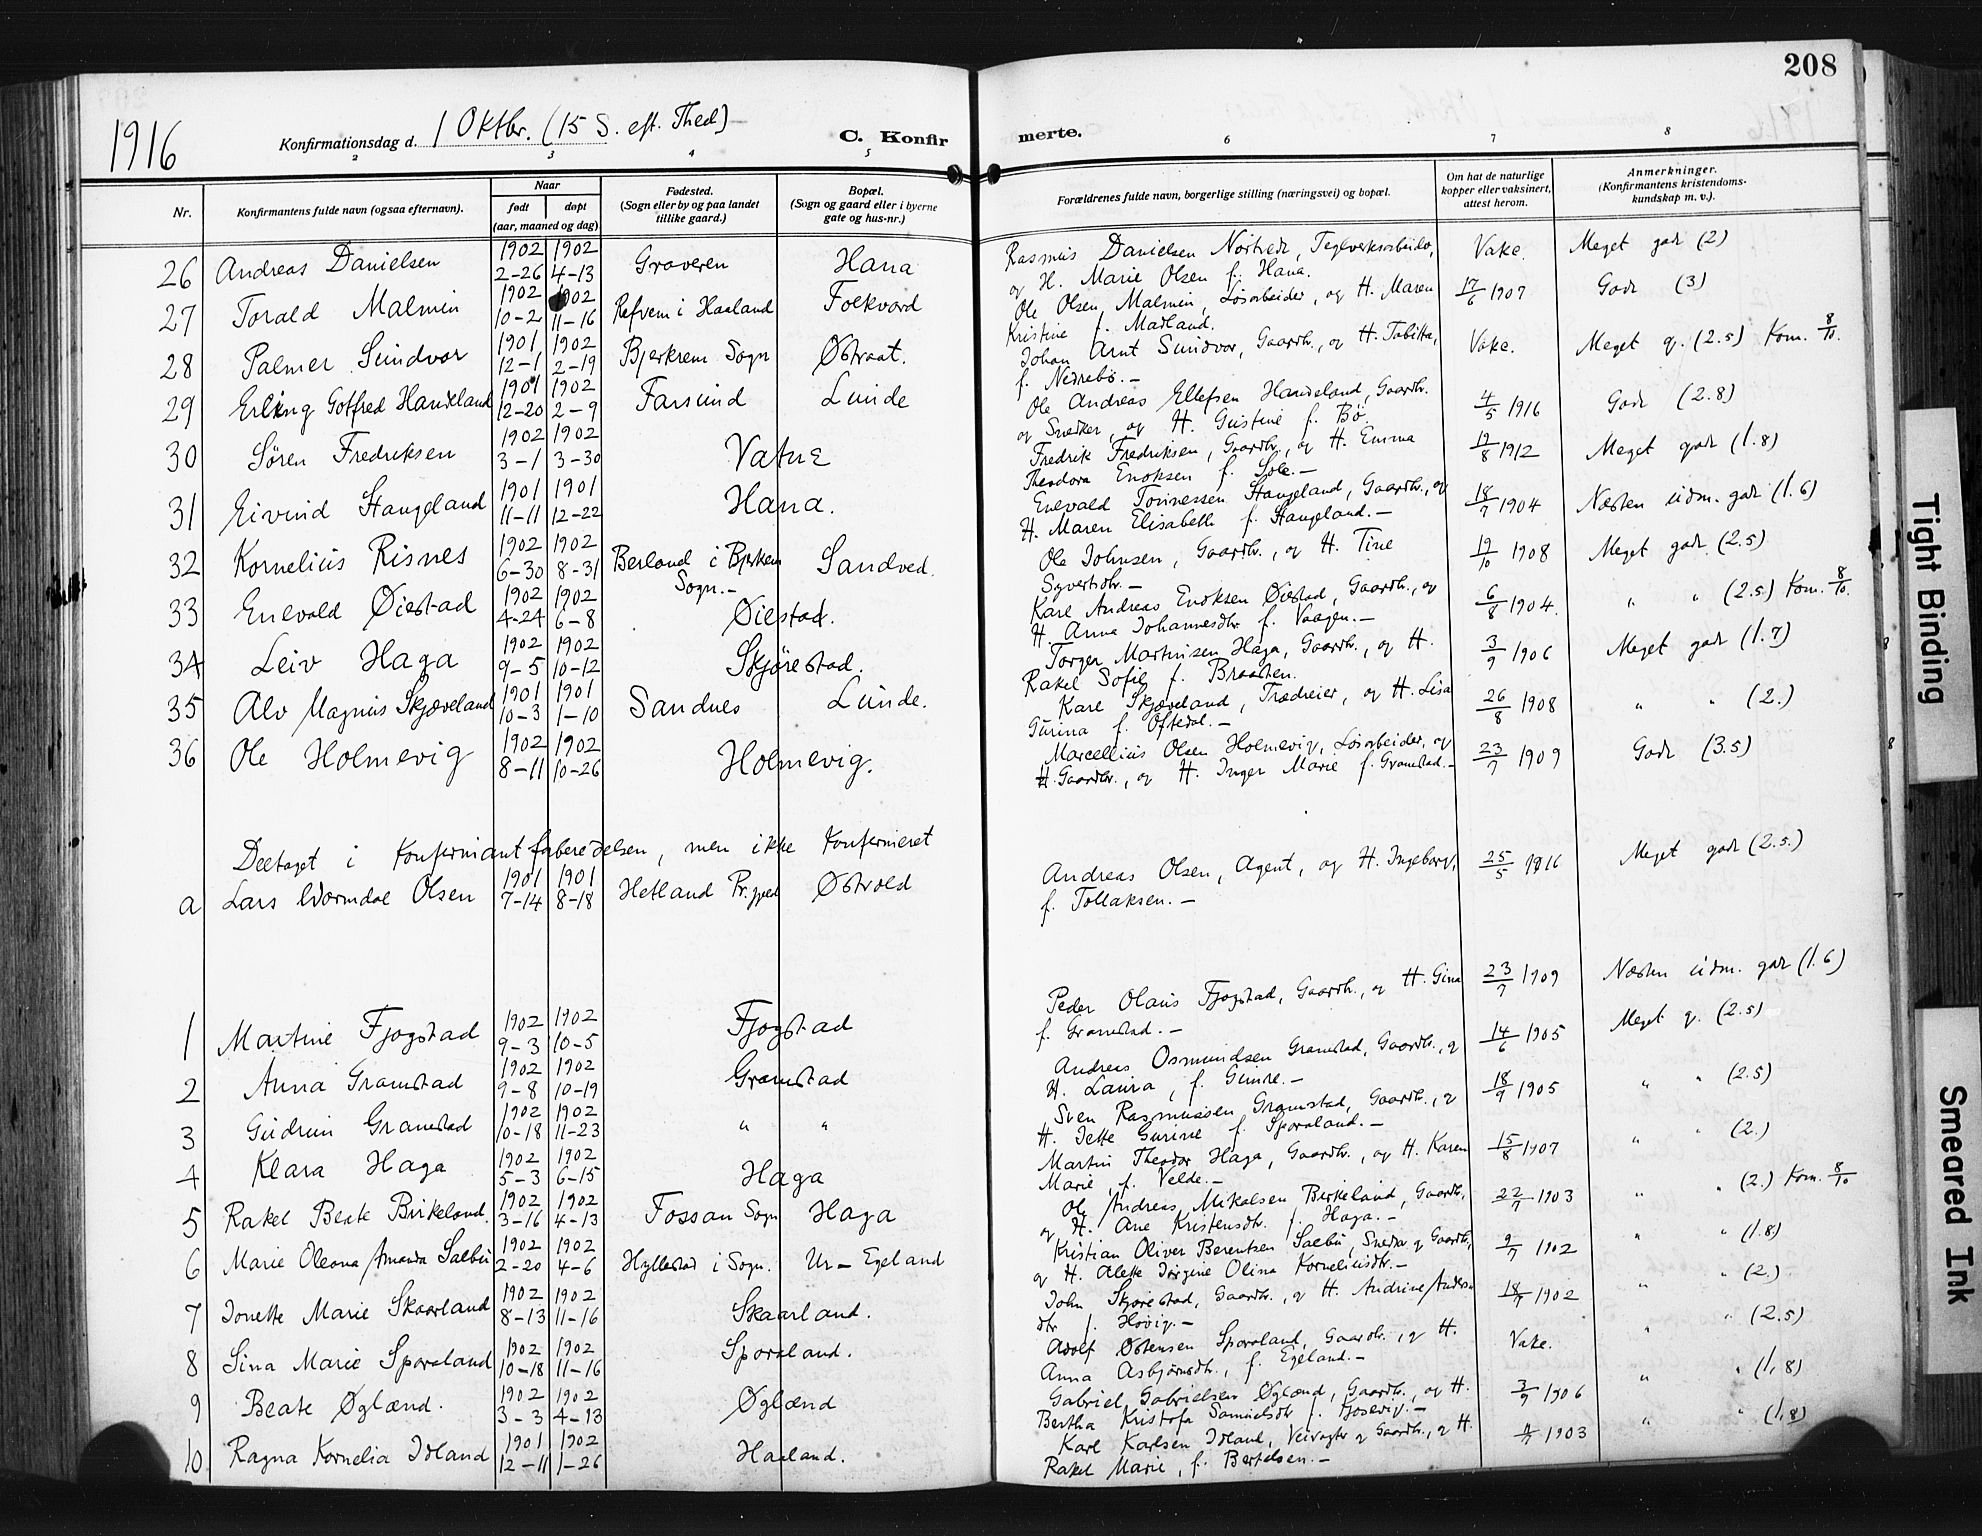 208
1916
Konfirmationsdag d. 1 Oktbr. (15 S. eft. Thed)
C. Konfirmerte.
2 3 4 5 6 7 8
Nr.
Konfirmantens fulde navn (ogsaa efternavn).
Naar
født døpt
(aar, maaned og dag)
Fødested.
(Sogn eller by og paa landet
tillike gaard.)
Bopæl.
(Sogn og gaard eller i byerne
gate og hus-nr.)
Forældrenes fulde navn, borgerlige stilling (næringsvei) og bopæl.
Om hat de naturlige
kopper eller vaksinert,
attest herom.
Anmerkninger.
(Konfirmantens kristendoms-
kundskap m. v.).
26 Andreas Danielsen 1902 2-26 1902 4-13 Graveren Hana Rasmus Danielsen Nortvedt, Teglverksarbeider,
og H. Marie Olsen f. Hana. Vake. Meget godt (2)
27 Torald Malmin 1902 10-2 1902 11-16 Refvem i Haaland Folkvord Ole Olsen Malmin, Løsarbeider, og H. Maren
Kristine f. Madland. 17/6 1907 Godt (3)
28 Palmer Sundvor 1901 12-1 1902 2-19 Bjerkrem Sogn Østraat. Johan Arnt Sundvor, Gaardbr., og H. Tabitta,
f. Nedrebø.- Vake. Meget g. (2.5) Kom. 8/10.
29 Erling Gotfred Handeland 1901 12-20 1902 2-9 Farsund Lunde Ole Andreas Ellefsen Handeland, Gaardbr.
og Snedker, og H. Gustine f. Bø. 4/5 1916 Godt (2.8)
30 Sören Fredriksen 1902 3-1 1902 3-30 Vatne Fredrik Fredriksen, Gaardbr., og H. Emma
Theodora Enoksen f. Sole.- 19/8 1912 Meget godt (1.8)
31 Eivind Stangeland 1901 11-11 1901 12-22 Hana. Enevald Tönnessen Stangeland, Gaardbr., og
H. Maren Elisabeth f. Stangeland.- 18/7 1904 Næsten udm. godt (1.6)
32 Kornelius Risnes 1902 6-30 1902 8-31 Berland i Bjerkem
Sogn.- Sandved. Ole Johnsen, Gaardbr., og H. Tine
Syvertsdtr.- 19/10 1908 Meget godt. (2.5)
33 Enevald Øiestad 1902 4-24 1902 6-8 Øiestad. Karl Andreas Enoksen Øiestad, Gaardbr., og
H. Anna Johannesdtr. f. Vaagen.- 6/8 1904. " " (2.5) Kom. 8/10.
34 Leiv Haga 1902 9-5 1902 10-12 Skjörestad. Torger Martinsen Haga, Gaardbr., og H.
Rakel Sofie f. Braasten. 3/9 1906 Meget godt (1.7)
35 Alv Magnus Skjæveland 1901 10-3 1901 1-10 Sandnes Lunde. Karl Skjæveland, Trædreier, og H. Lisa
Gurina f. Oftedal.- 26/8 1908 " " (2.)
36 Ole Holmevig 1902 8-11 1902 10-26 Holmevig. Marcellius Olsen Holmevig, Løsarbeider, og
H. Gaardbr., og H. Inger Marie f. Gramstad.- 23/7 1909 Godt (3.5)
Deltaget i Konfirmantforberedelsen, men ikke Konfirmeret
a Lars Wormdal Olsen 1901 7-14 1901 8-18 Hetland Pr.gjeld Østvold Andreas Olsen, Agent, og H. Ingeborg,
f. Tollaksen.- 25/5 1916 Meget godt (2.5.)
1 Martine Fjogstad 1902 9-3 1902 10-5 Fjogstad Peder Olaus Fjogstad, Gaardbr., og H. Gina
f. Gramstad.- 23/7 1909 Næsten udm. godt (1.6)
2 Anna Gramstad 1902 9-8 1902 10-19 Gramstad Andreas Osmundsen Gramstad, Gaardbr., og
H. Laura, f. Gimre.- 14/6 1905 Meget g. (2.5)
3 Gudrun Gramstad 1902 10-18 1902 11-23 " " Sven Rasmussen Gramstad, Gaardbr., og
H. Jette Gurine f. Sporaland.- 18/9 1905 " " (2.5)
4 Klara Haga 1902 5-3 1902 6-15 Haga Martin Theodor Haga, Gaardbr., og H. Karen
Marie, f. Velde.- 15/8 1907 " " (2.)
5 Rakel Beate Birkeland. 1902 3-16 1902 4-13 Fossan Sogn Haga Ole Andreas Mikalsen Birkeland, Gaardbr.
og H. Ane Kristensdtr. f. Haga.- 22/7 1903 " " (2.) Kom. 8/10
6 Marie Oleona Amanda Salbu 1902 2-20 1902 4-6 Hyllestad i Sogn. Ur-Egeland Kristian Oliver Berentsen Salbu, Snedker og Gaardbr.,
og H. Alette Jørgine Olina Korneliusdtr.- 9/7 1902 " " (1.8)
7 Jonette Marie Skaarland 1902 8-13 1902 11-16 Skaarland. John Skjørestad, Gaardbr., og H. Andrine Anders
dtr. f. Høvig.- 18/7 1902 " " (2.)
8 Sina Marie Sporaland 1902 10-18 1902 11-16 Sporaland. Adolf Østensen Sporaland, Gaardbr., og H.
Anna Asbjørnsdtr., f. Egeland.- Vake. " " (2.5)
9 Beate Øglænd. 1902 3-3 1902 4-13 Øglænd Gabriel Gabrielsen Øglænd, Gaardbr., og H.
Bertha Kristofa Samuelsdtr f. Fjosevig.- 3/9 1906 " " (1,8)
10 Ragna Kornelia Idland 1901 12-11 1902 1-26 Haaland. Karl Karlsen Idland, Veivogter og Gaardbr., og H.
Rakel Marie, f. Bertelsen.- 1903 " " (1,8)
Tight Binding
Smeared Ink